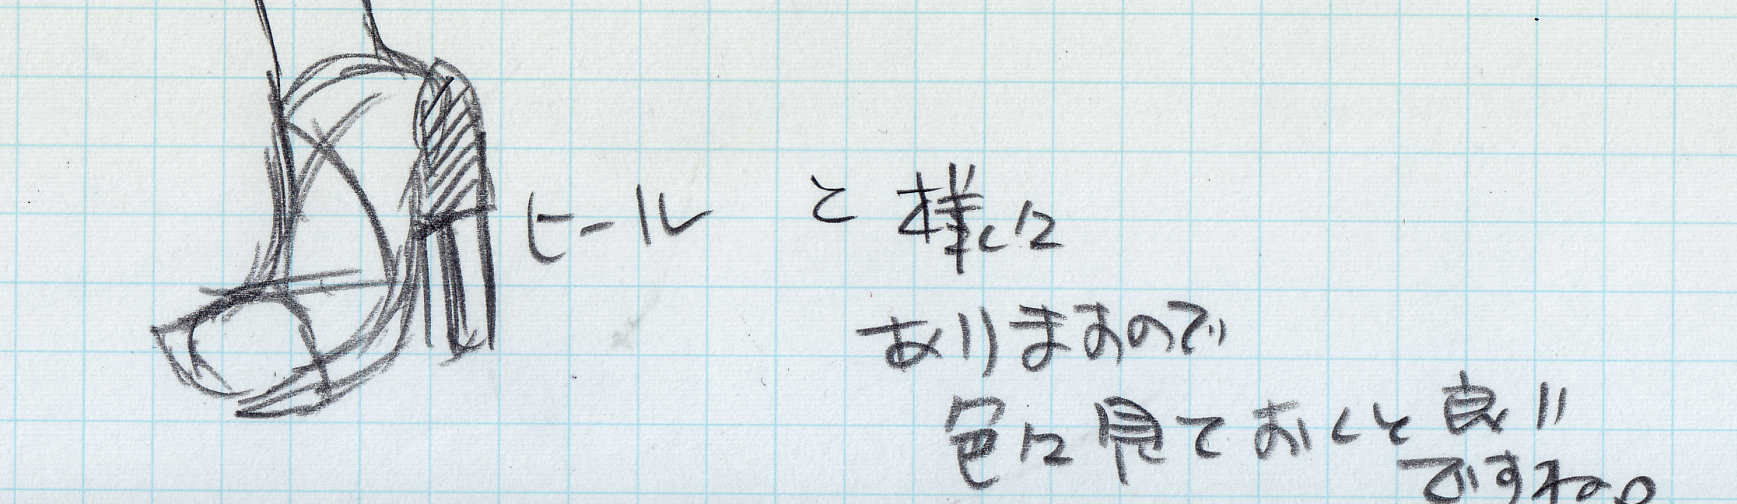 ヒール と様々
ありますので
色々見ておくと良い
ですね。